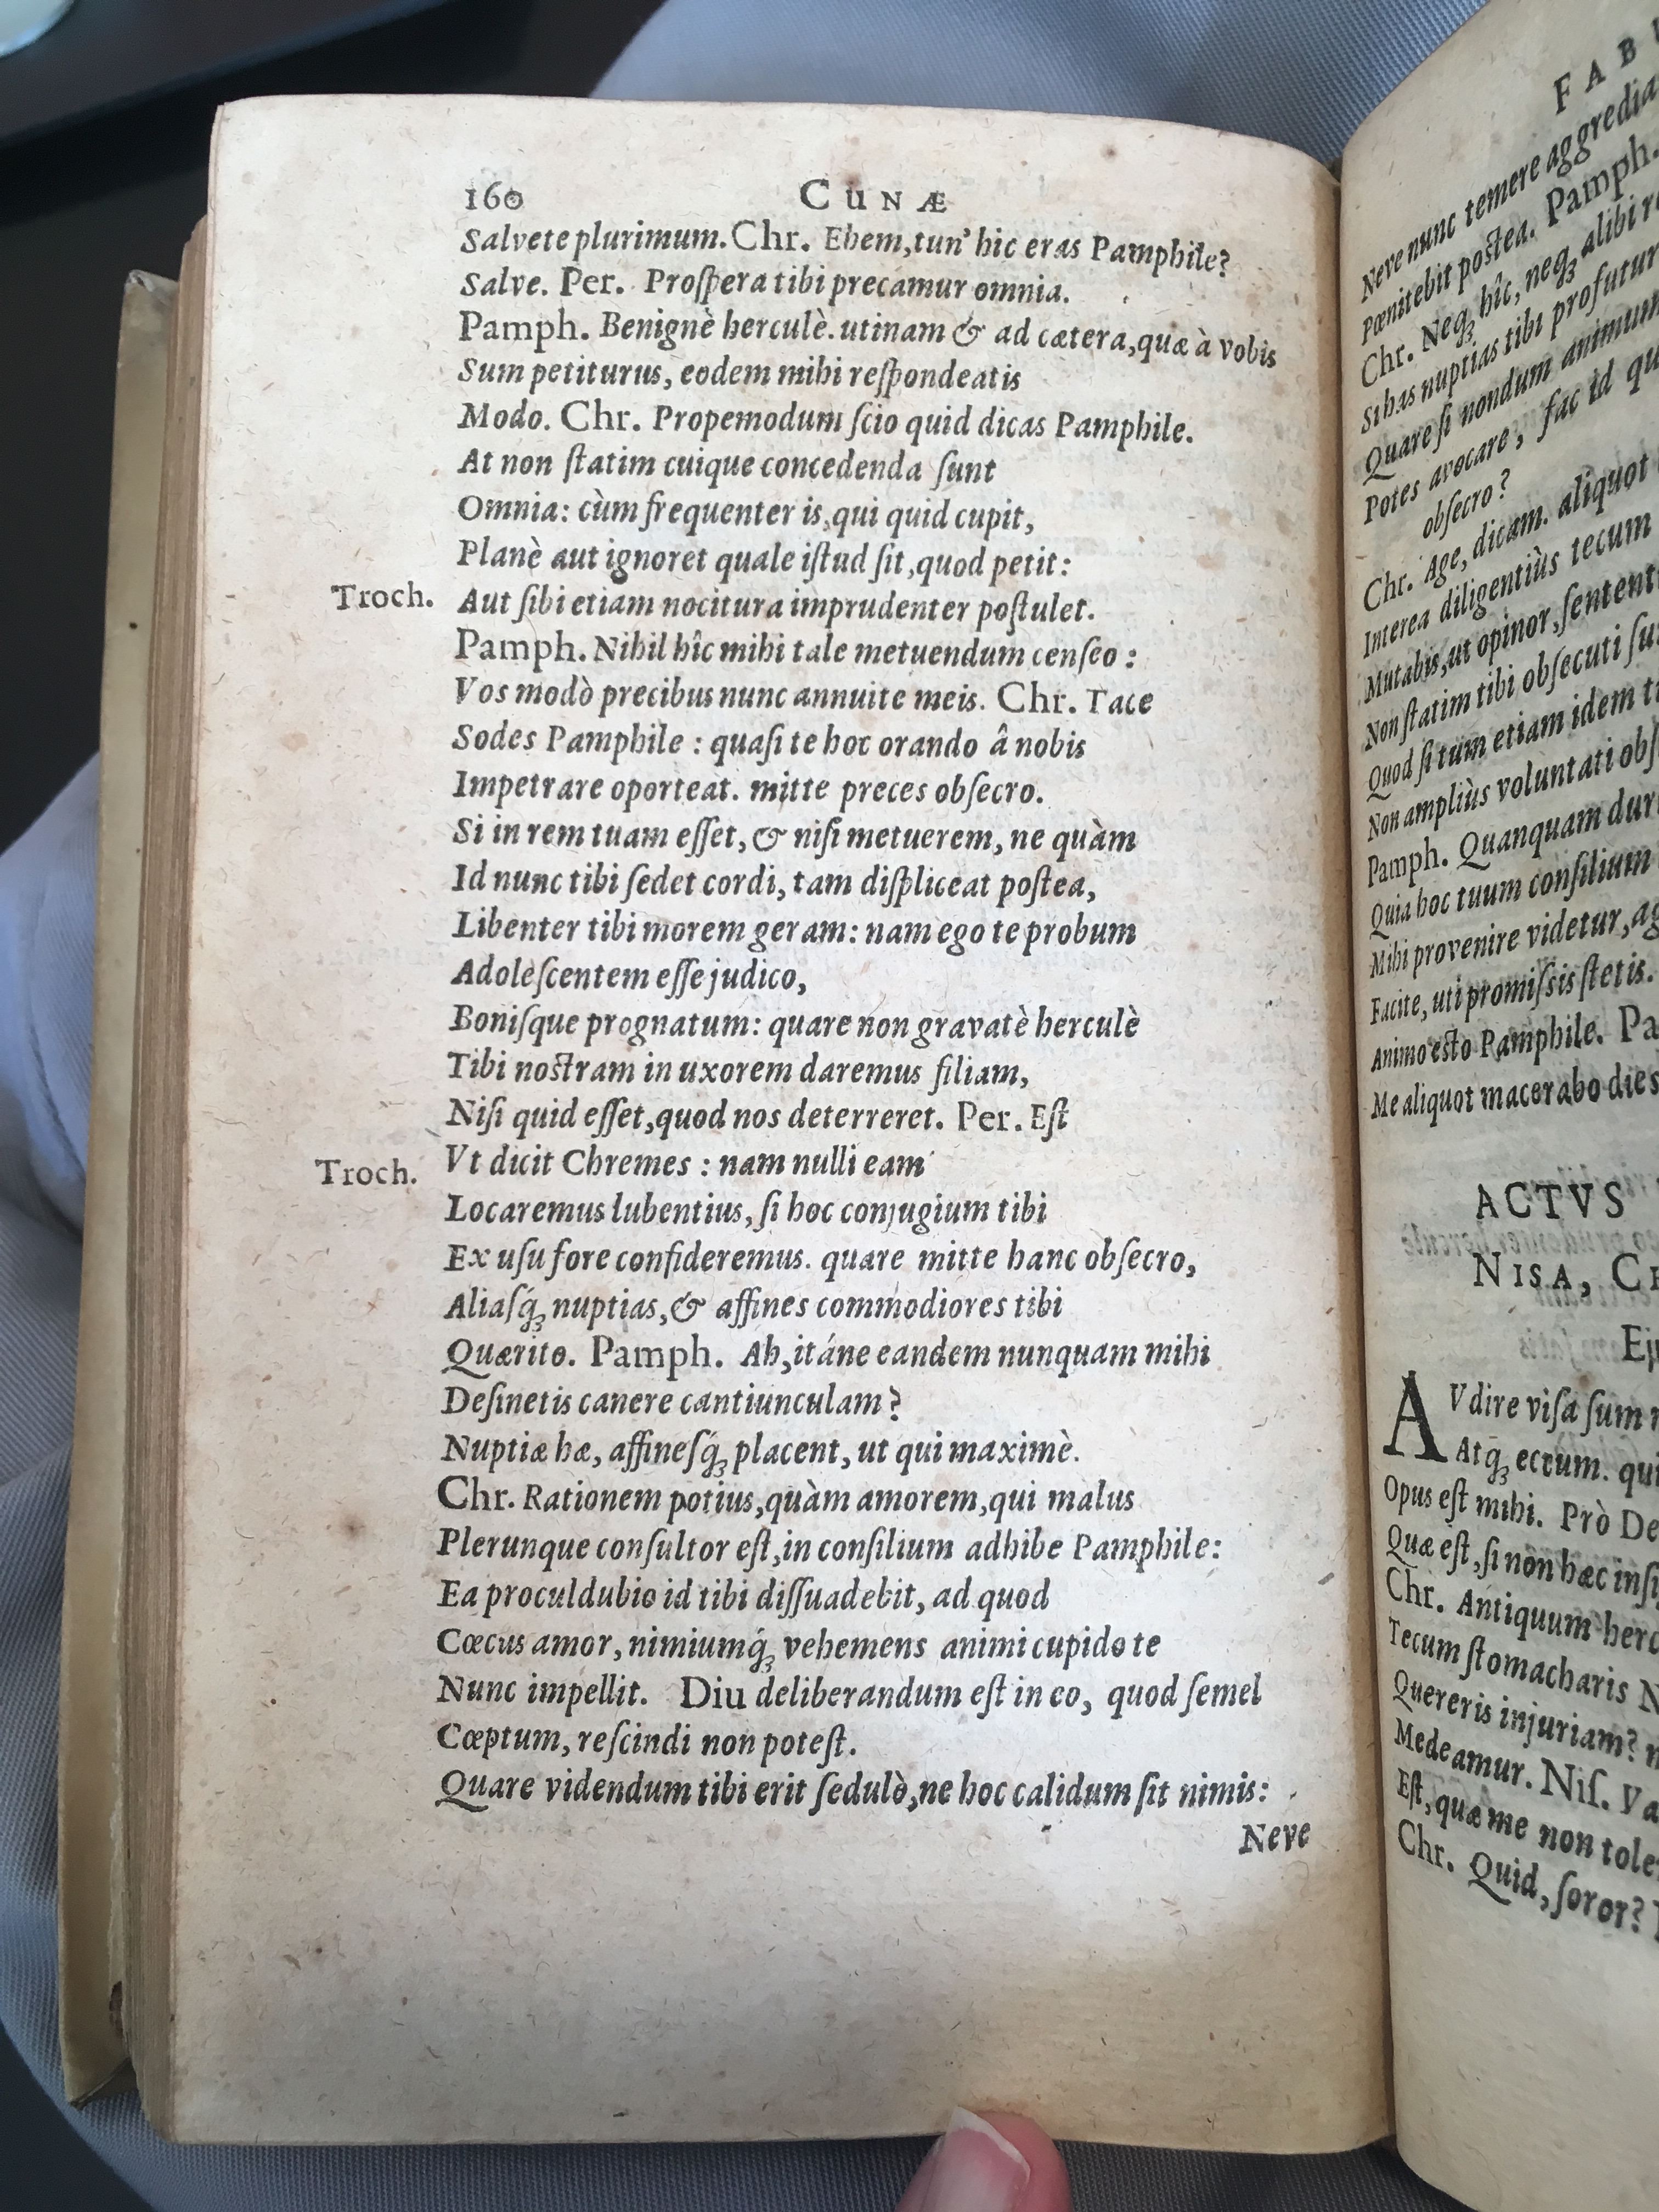 160 CUNÆ
Salvete plurimum. Chr. Ehem, tun' hic eras Pamphile?
Salve. Per. Proſpera tibi precamur omnia.
Pamph. Benignè herculè. utinam & ad cætera, quæ à vobis
Sum petiturus, eodem mihi reſpondeatis
Modo. Chr. Propemodum ſcio quid dicas Pamphile.
At non ſtatim cuique concedenda ſunt
Omnia: cùm frequenter is, qui quid cupit,
Planè aut ignoret quale iſtud ſit, quod petit:
Troch. Aut ſibi etiam nocitura imprudenter poſtulet.
Pamph. Nihil hîc mihi tale metuendum cenſeo:
Vos modò precibus nunc annuite meis. Chr. Tace
Sodes Pamphile: quaſi te hoc orando â nobis
Impetrare oporteat. mitte preces obſecro.
Si in rem tuam eſſet, & niſi metuerem, ne quàm
Id nunc tibi ſedet cordi, tam diſpliceat poſtea,
Libenter tibi morem geram: nam ego te probum
Adoleſcentem eſſe judico,
Boniſque prognatum: quare non gravatè herculè
Tibi noſtram in uxorem daremus filiam,
Niſi quid eſſet, quod nos deterreret. Per. Eſt
Troch. Vt dicit Chremes: nam nulli eam
Locaremus lubentius, ſi hoc conjugium tibi
Ex uſu fore confideremus. quare mitte hanc obſecro,
Aliaſq́ꝫ nuptias, & affines commodiores tibi
Quærito. Pamph. Ah, itáne eandem nunquam mihi
Deſinetis canere cantiunculam?
Nuptiæ hæ, affineſq́ꝫ placent, ut qui maximè.
Chr. Rationem potius, quàm amorem, qui malus
Plerunque conſultor eſt, in conſilium adhibe Pamphile:
Ea proculdubio id tibi diſſuadebit, ad quod
Cœcus amor, nimiumq́ꝫ vehemens animi cupido te
Nunc impellit. Diu deliberandum eſt in eo, quod ſemel
Cœptum, reſcindi non poteſt.
Quare videndum tibi erit ſedulò, ne hoc calidum ſit nimis:
Neve
Neve nunc temere aggredia
Pœnitebit poſtea. Pamph.
Chr. Neqꝫ hîc, neqꝫ alibi
Si has nuptias tibi profutur
Quare ſi nondum animum
Potes avocare, fac id
obſecro?
Chr. Age, dicam. aliquot
Interea diligentiùs tecum
Mutabis, ut opinor, ſentent
Non ſtatim tibi obſecuti
Quod ſi tum etiam idem
Non ampliùs voluntati
Pamph. Quanquam
Quia hoc tuum conſilium
Mihi provenire videtur,
Facite, uti promiſsis ſtetis.
Animo eſto Pamphile.
Me aliquot macerabo dies
ACTVS
NISA,
AVdire viſa ſum
Atqꝫ eccum.
Opus eſt mihi. Prò
Quæ eſt, ſi non hæc
Chr. Antiquum
Tecum ſtomacharis
Quereris injuriam?
Medeamur. Niſ.
Eſt, quæ me non
Chr. Quid, ſoror?